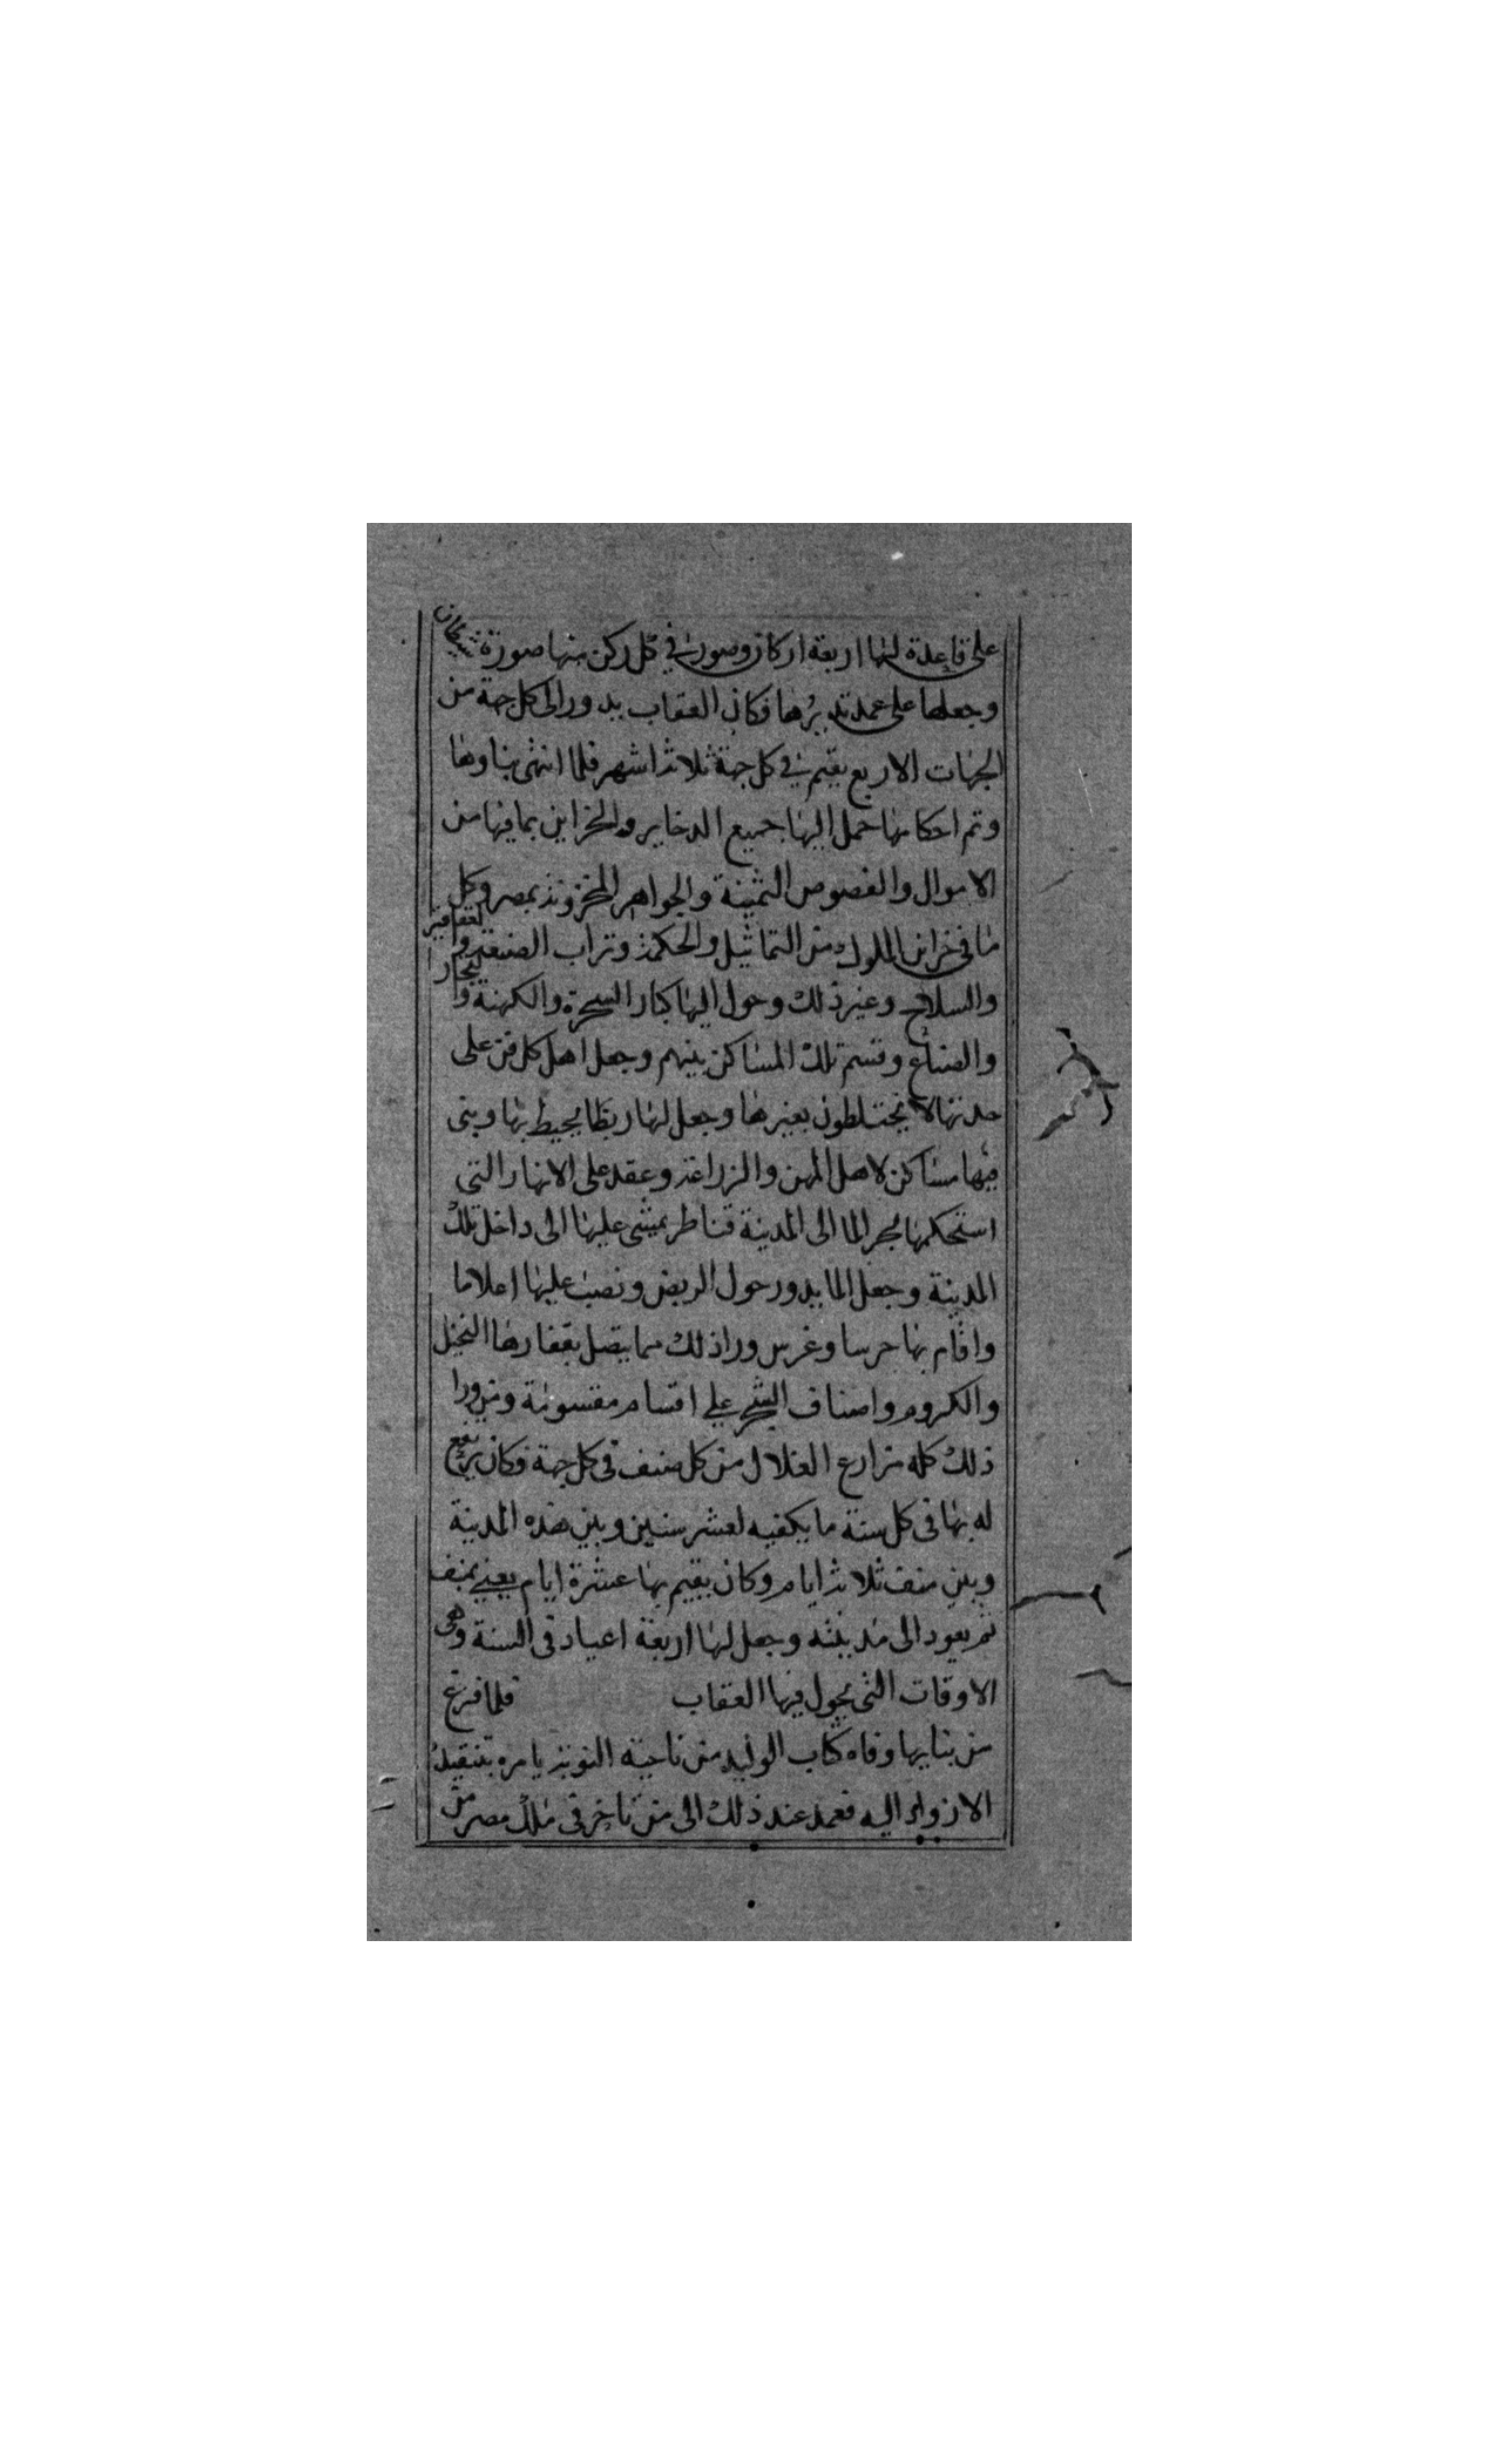 على قاعدة لها اربعة اركان وصورة في كل ركن منها صورة شيطان
وجعلها على عمد تديرها فكان العقاب يدور الى كل جهة من
الجهات الاربع يقيم في كل جهة ثلاثة اشهر فلما انتهى بناوها
وتم احكامها حمل اليها جميع الدخاير والخزاين بما فيها من
الاموال والفصوص الثمينة والجواهر المخزونة بمصر وكل
ما في خزاين الملوك من التماثيل والحكمة وتراب الصنعة والعقاقير
والسلاح وغير ذلك وحول اليها كبار السحرة والكهنة والتجار
والصناع وقسم تلك المساكن بينهم وجعل اهل كل فن على
حدتها لا يختلطون بغيرها وجعل لها ربظا يحيط بها وبنى
فيها مساكن لاهل المهن والزراعة وعقد على الانهار التي
استحكمها لمجر الما الى المدينة قناطر يمشى عليها الى داخل تلك
المدينة وجعل الما يدور حول الربض ونصب عليها اعلاما
واقام بها حرسا وغرس ورا ذلك مما يتصل بقفارها النخيل
والكروم واصناف الشجر على اقسام مقسومة ومن ورا
ذلك كله مزارع الغلال من كل صنف في كل جهة فكان يرتفع
له بها في كل سنة ما يكفيه لعشر سنين وبين هذه المدينة
وبين منف ثلاثة ايام وكان يقيم بها عشرة ايام يعني بمنف
ثم يعود الى مدينته وجعل لها اربعة اعياد في السنة وهي
الاوقات التي يحول فيها العقاب فلما فرغ
من بنايها وفاه كتاب الوليد من ناحية النوبة يامره بتنفيد
الازواد اليه فعمد عند ذلك الى من تاخر في ملك مصر من